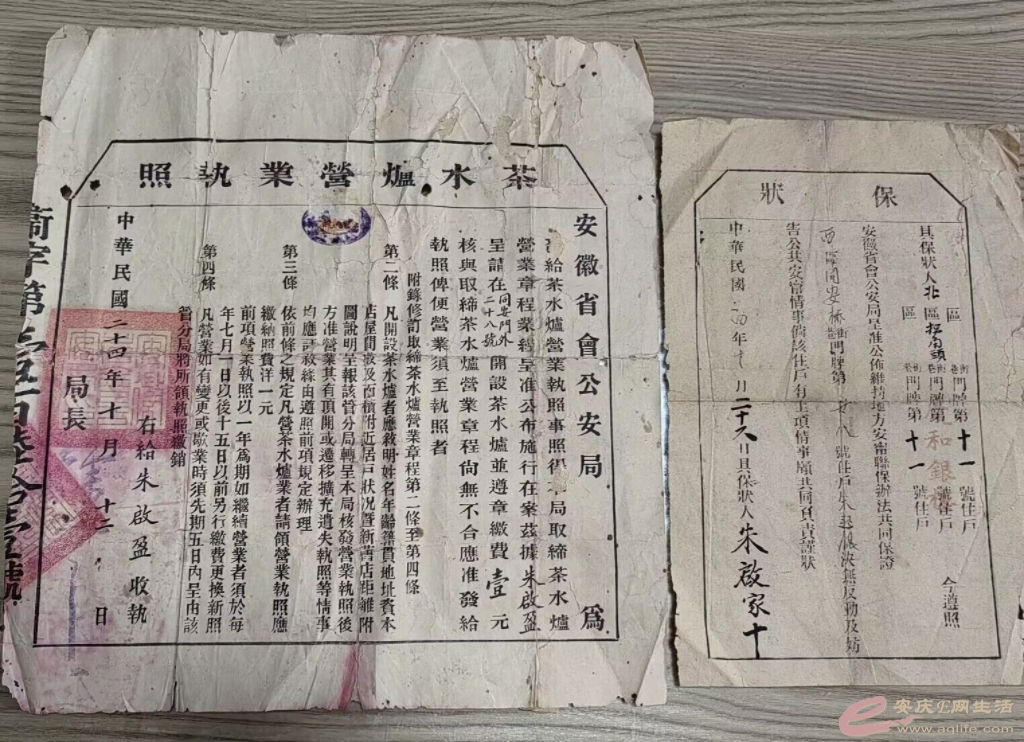 茶水爐營業執照
安徽省會公安局
為
給茶水爐營業執照事照得本局取締茶水爐
營業章程業經呈准公布施行在案茲據朱啟盈
呈請在同安門外二十八號開設茶水爐並遵章繳費壹元
核與取締茶水爐營業章程尚無不合應准發給
執照俾便營業須至執照者
附錄修訂取締茶水爐營業章程第二條至第四條
第二條 凡開設茶水爐者應敘明姓名年齡籍貫地址資本
店屋間數及面積附近居戶狀況暨新舊店距離附
圖說明呈報該管分局轉呈本局核發營業執照後
方准營業其有頂開或遷移擴充遺失執照等情事
均應計敘緣由遵照前項規定辦理
第三條 依前條之規定凡營茶水爐業者請領營業執照應
繳納照費洋一元
前項營業執照以一年為期如繼續營業者須於每
年七月一日以後十五日以前另行繳費更換新照
第四條 凡營業如有變更或歇業時須先期五日內呈由該
管分局將所領執照繳銷
右給朱啟盈收執
中華民國二十四年十月十二日
局長
保狀
具保狀人北區
區
街巷門牌第十一號住戶
街巷門牌第十一號住戶
今遵照
安徽省會公安局呈准公佈維持地方安甯聯保辦法共同保證
號住戶朱決無反動及妨
告公共安甯情事倘該住戶有上項情事願共同負責謹狀
中華民國 四年十 月二十六日具保狀人朱啟家十
安庆E网生活
www.aqlife.com